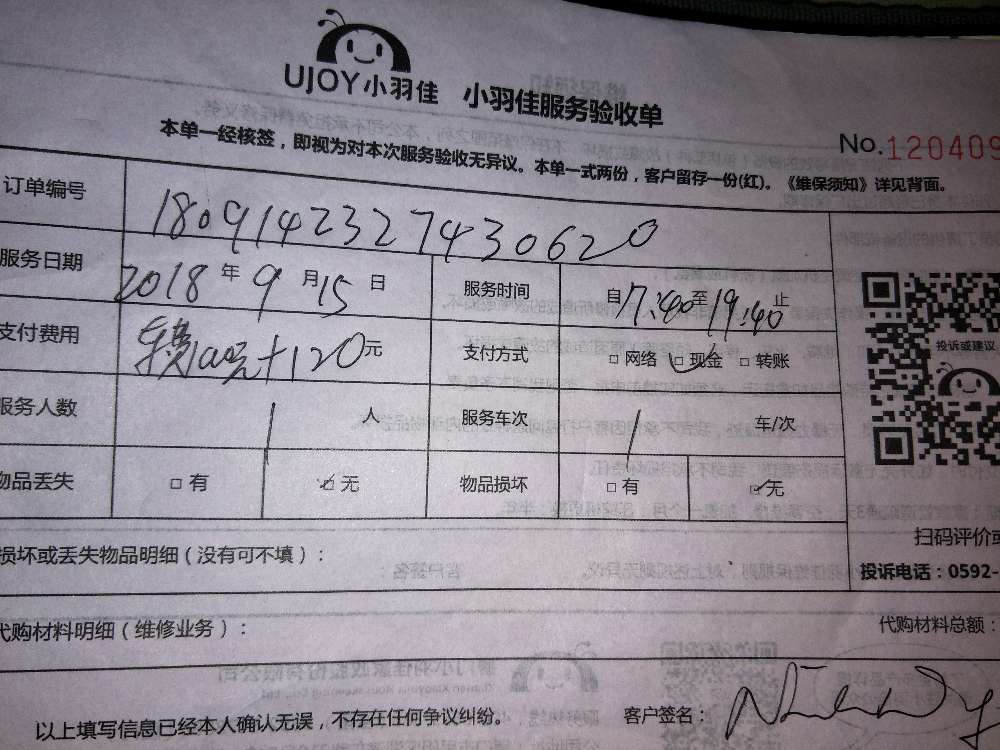 UJOY小羽佳 小羽佳服务验收单
本单一经核签，即视为对本次服务验收无异议。本单一式两份，客户留存一份(红)。《维保须知》详见背面。
No.120409
订单编号 1809142327430620
服务日期 2018年9月15日 服务时间 自17:40至19:40止
支付费用 +120元 支付方式 □网络 □现金 □转账
服务人数 1人 服务车次 1车/次
物品丢失 □有 ☑无 物品损坏 □有 ☑无
投诉或建议
扫码评价或
投诉电话：0592-
损坏或丢失物品明细（没有可不填）：
代购材料明细（维修业务）：
代购材料总额：
以上填写信息已经本人确认无误，不存在任何争议纠纷。 客户签名：